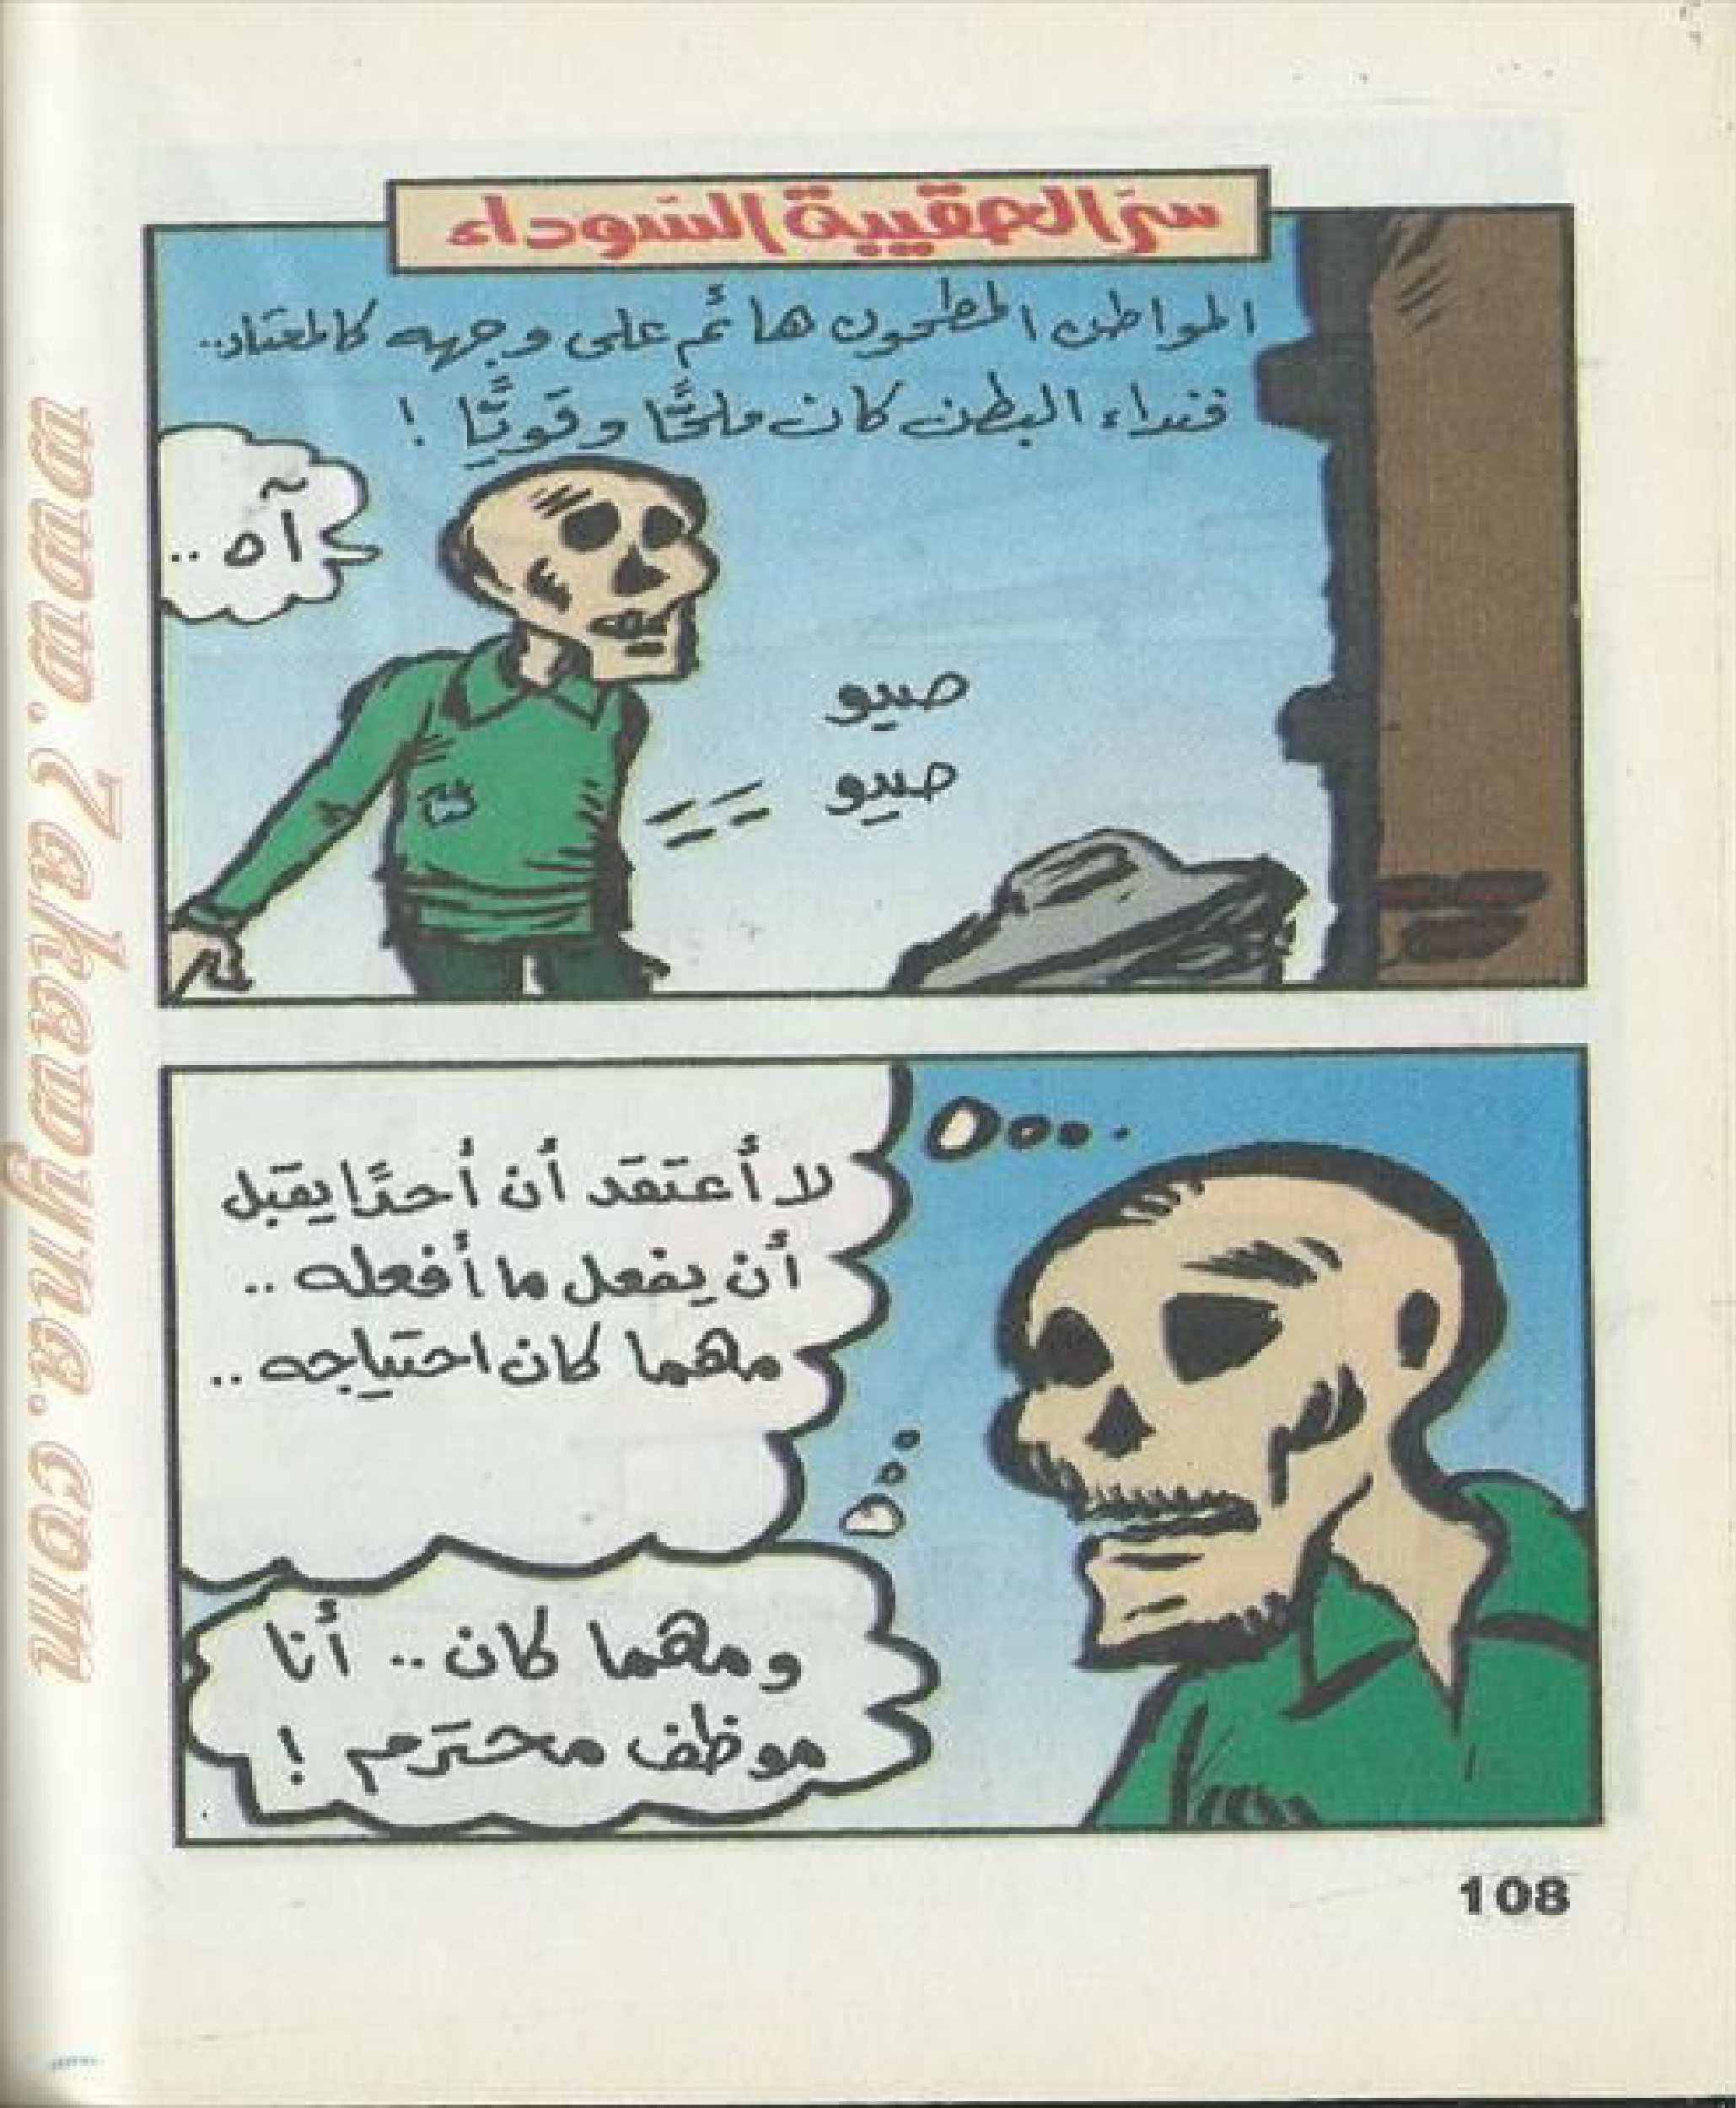 سر الحقيبة السوداء
المواطن المطحون هائم على وجهه كالمعتاد..
فنداء البطن كان ملحًّا وقويًّا !
آه ..
صيو
صيو
لا أعتقد أن أحدًا يقبل
أن يفعل ما أفعله ..
مهما كان احتياجه ..
ومهما كان .. أنا
موظف محترم !
108